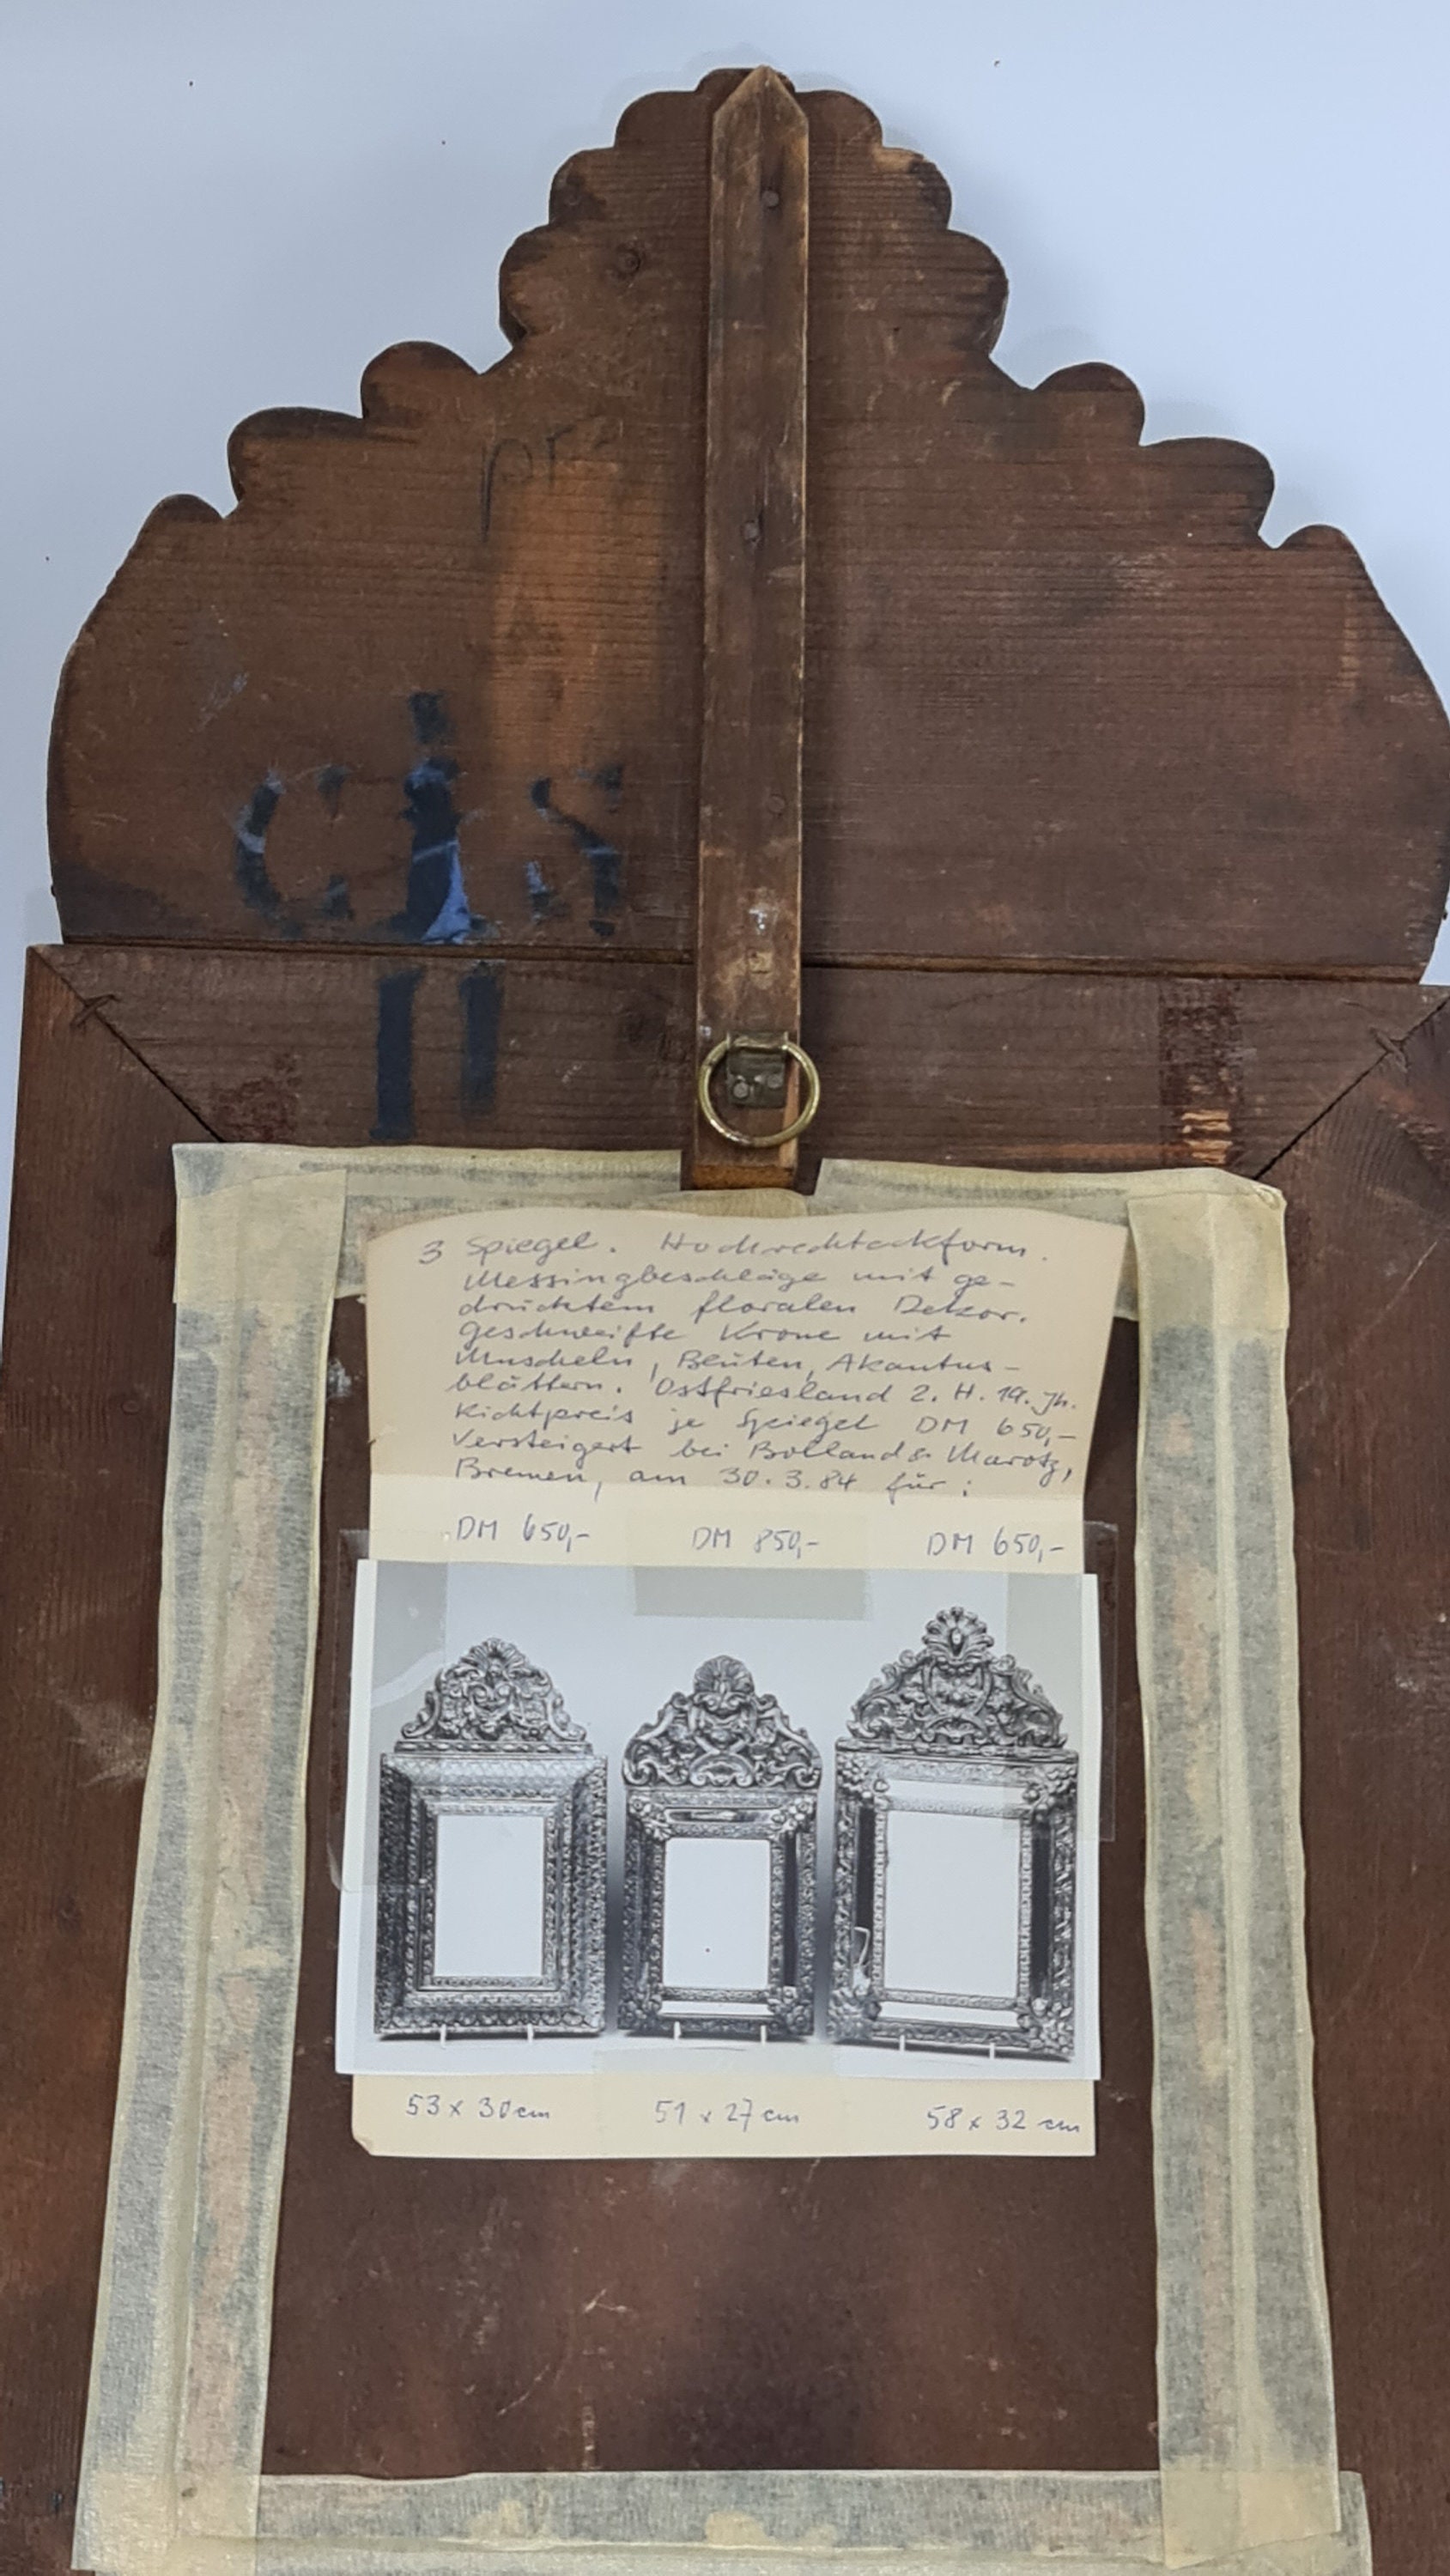 pr
3 Spiegel. Hochrechteckform.
Messingbeschläge mit ge-
drücktem floralen Dekor.
Geschweifte Krone mit
Muscheln, Blüten, Akantus-
blättern. Ostfriesland 2. H. 19. Jh.
Richtpreis je Spiegel DM 650,-
Versteigert bei Bolland & Marotz,
Bremen, am 30.3.84 für:
DM 650,- DM 850,- DM 650,-
53 x 30 cm 51 x 27 cm 58 x 32 cm